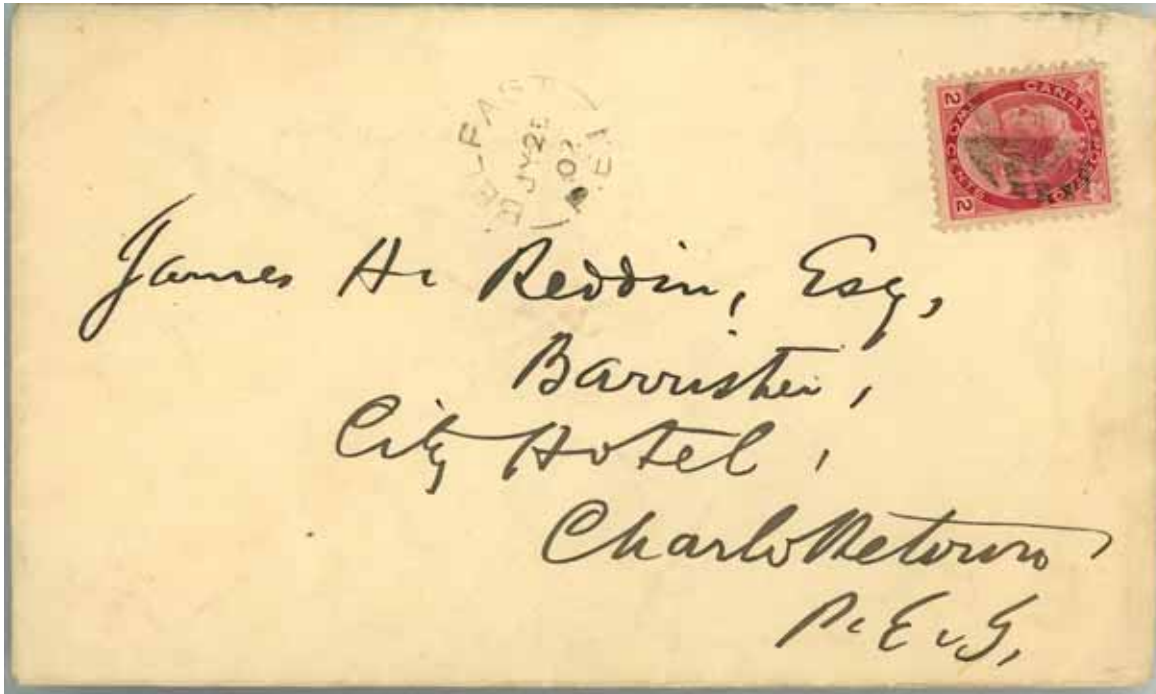 BELFAST
JY 25
02
P.E.I
CANADA POSTAGE
TWO CENTS
2
2
James H. Reddin, Esq,
Barrister,
City Hotel,
Charlottetown
P.E.I,